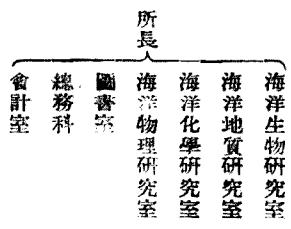 所長
海洋生物研究室
海洋地質研究室
海洋化學研究室
海洋物理研究室
圖書室
總務科
會計室